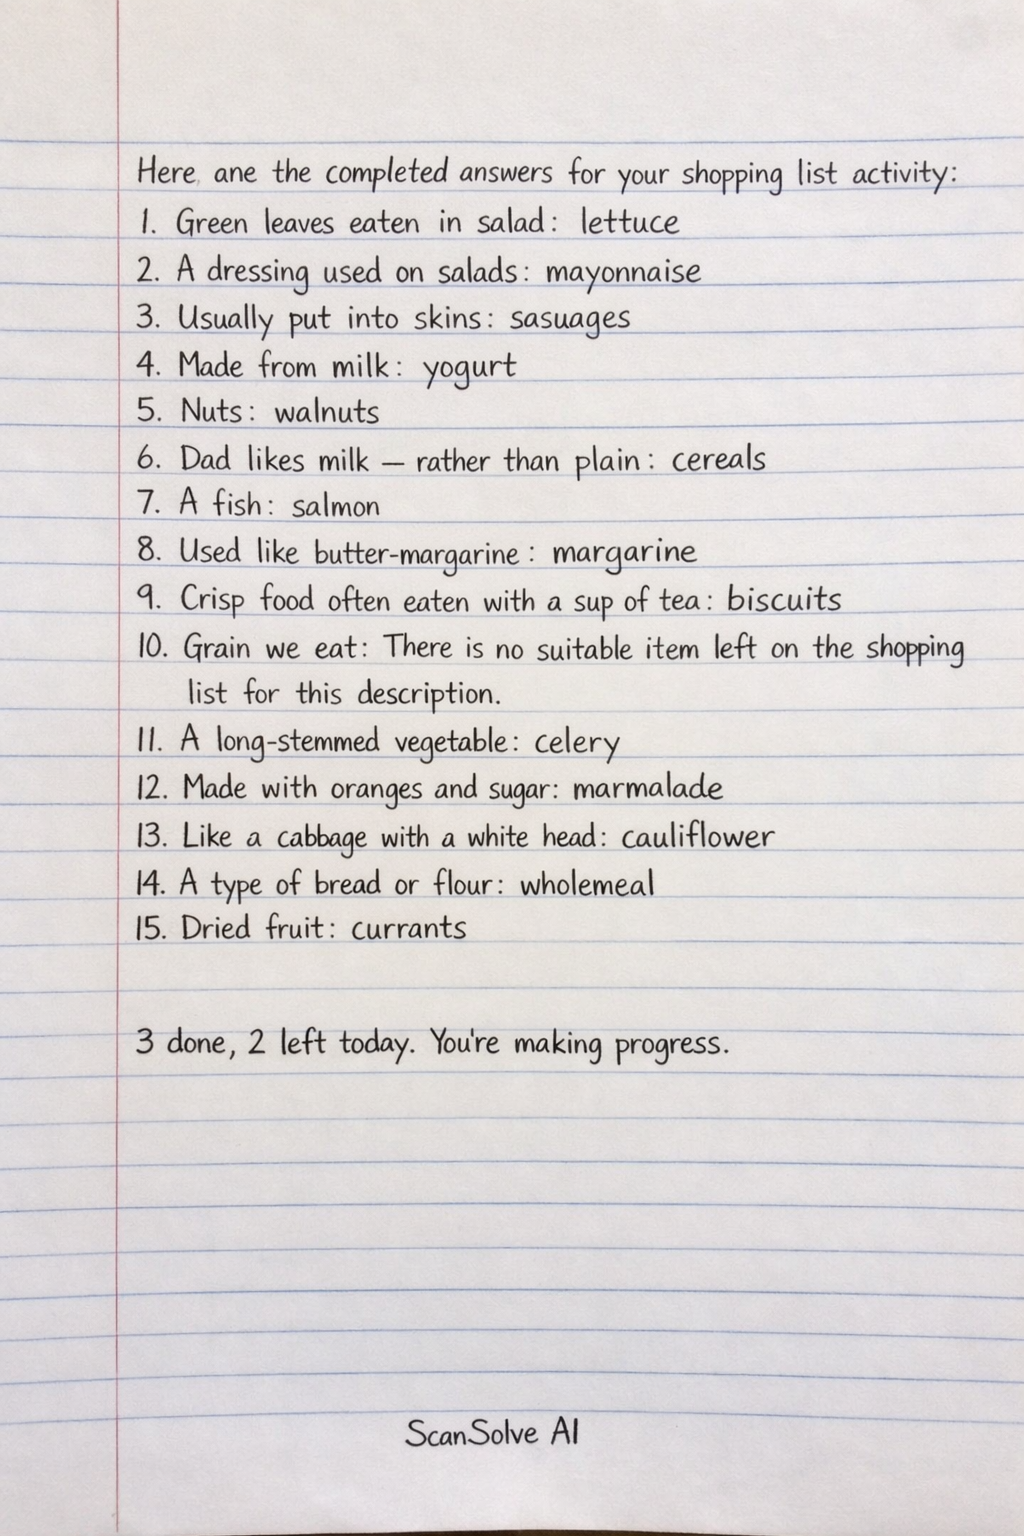 Here ane the completed answers for your shopping list activity:
1. Green leaves eaten in salad: lettuce
2. A dressing used on salads: mayonnaise
3. Usually put into skins: sasuages
4. Made from milk: yogurt
5. Nuts: walnuts
6. Dad likes milk — rather than plain: cereals
7. A fish: salmon
8. Used like butter-margarine: margarine
9. Crisp food often eaten with a sup of tea: biscuits
10. Grain we eat: There is no suitable item left on the shopping
list for this description.
11. A long-stemmed vegetable: celery
12. Made with oranges and sugar: marmalade
13. Like a cabbage with a white head: cauliflower
14. A type of bread or flour: wholemeal
15. Dried fruit: currants
3 done, 2 left today. You're making progress.
ScanSolve AI